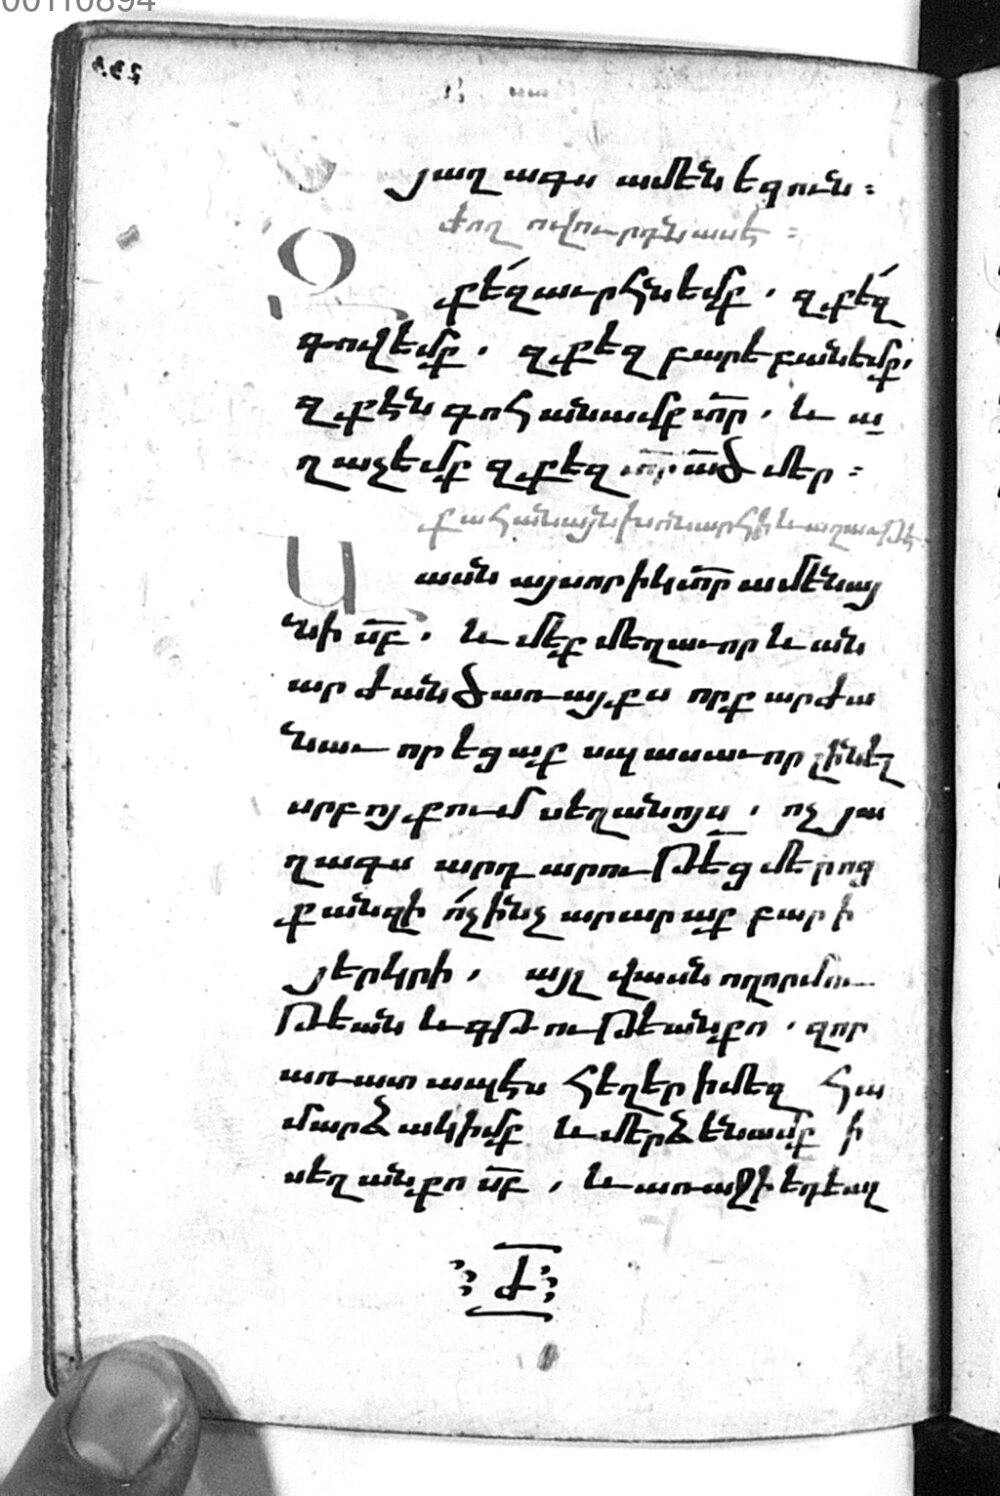 00110894
յաղագս ամենեցուն ։
Ժողովուրդն ասէ ։
Զ
քե՛զ աւրհնեմք . զքե՛զ
գովեմք . զքեզ բարեբանեմք .
զքէն գոհանամք տր . և ա
ղաչեմք զքեզ տր ած մեր ։
քահանայն խոնարհի և աղաւթէ
Վ
ասն այսորիկ տր ամենայ
նի սբ . և մեք մեղաւոր և ան
արժան ծառայքս որք արժա
նաւորեցաք սպասաւոր լինել
սրբոյ քում սեղանոյս . ոչ յա
ղագս արդարութեց մերոց
քանզի ոչինչ արարաք բարի
յերկրի . այլ վասն ողորմու
թեան և գթութեան քո . զոր
առատապէս հեղեր ի մեզ հա
մարձակիմք և մերձենամք ի
սեղան քո սբ . և առաջի եդեալ
Ժ